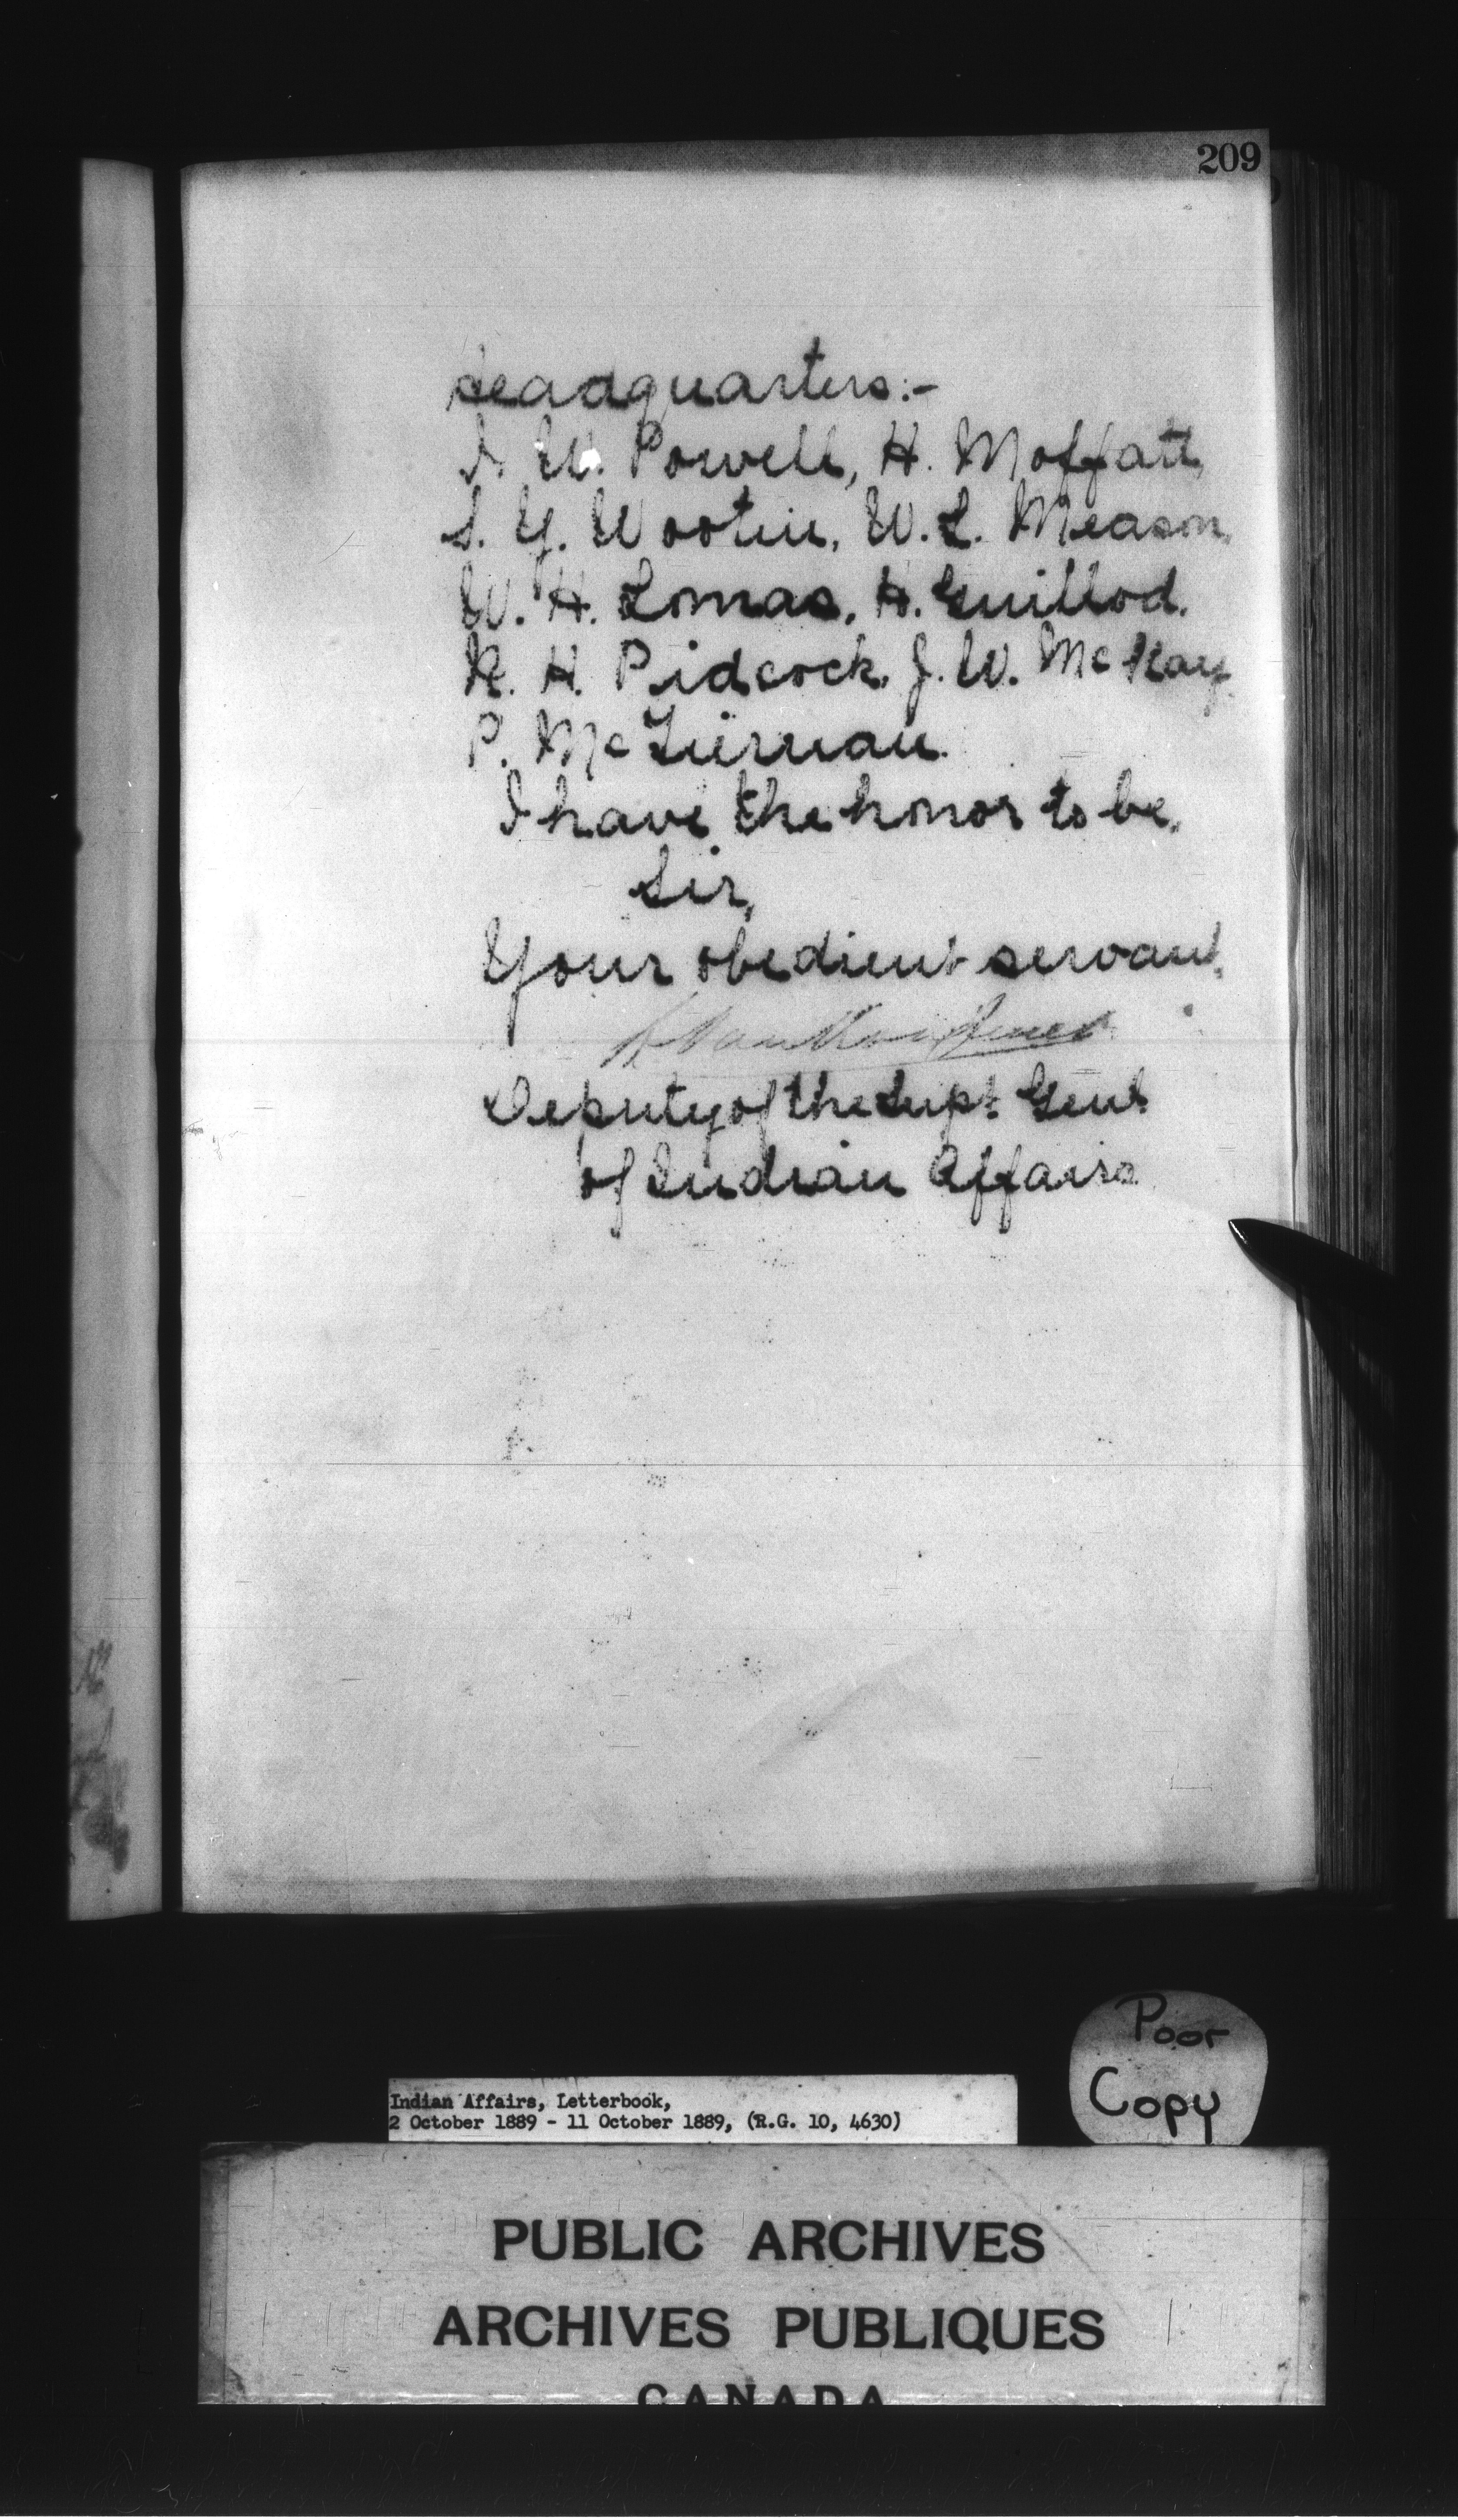 209
headquarters:-
I. W. Powell, H. Moffatt,
S. Y. Wootin, W. L. Meason,
W. H. Lomas, H. Guillod.
R. H. Pidcock, J. W. McKay
P. McTiernan.
I have the honor to be,
Sir,
Your obedient servant,
L Vankoughnet
Deputy of the Supt Genl
of Indian Affairs
Poor
Copy
Indian Affairs, Letterbook,
2 October 1889 - 11 October 1889, (R.G. 10, 4630)
PUBLIC ARCHIVES
ARCHIVES PUBLIQUES
CANADA